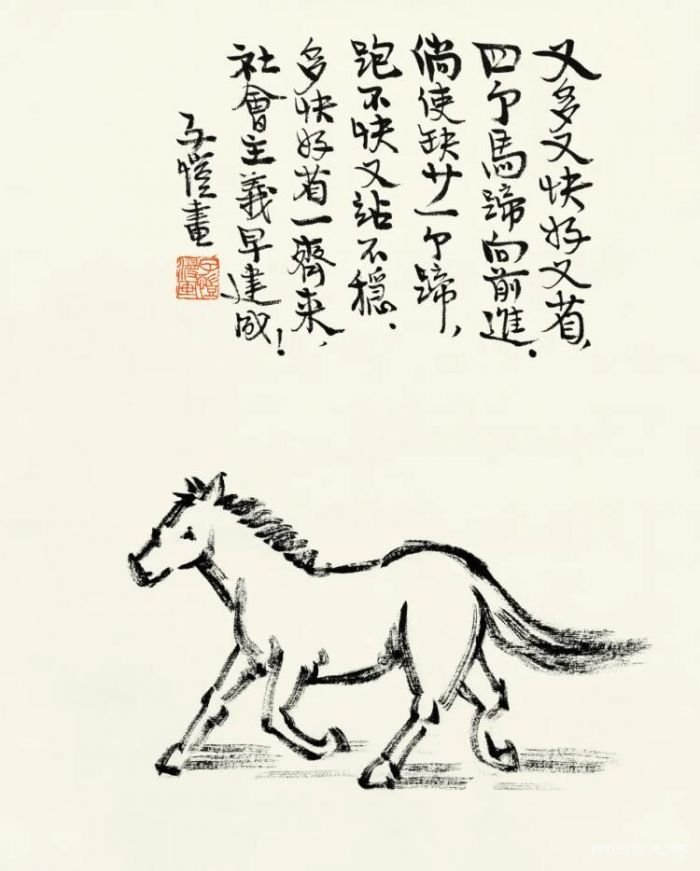 又多又快好又省，
四个馬蹄向前進．
倘使缺少一个蹄，
跑不快又站不穩．
多快好省一齊來，
社會主義早建成！
子愷畫
子愷漫畫